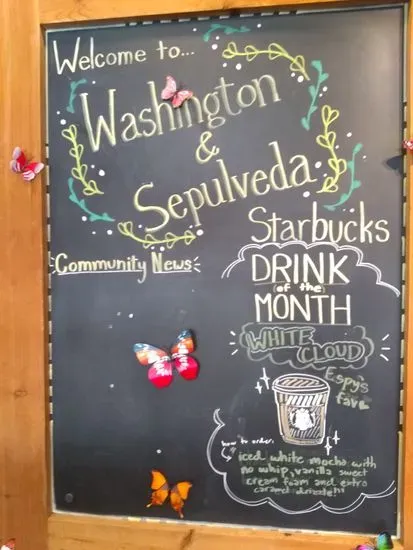 Welcome to...
Washington
&
Sepulveda
Starbucks
Community News
DRINK
(of the)
MONTH
WHITE
CLOUD
Espy's
fav
how to order:
iced white mocha with
no whip, vanilla sweet
cream foam and extra
caramel drizzle!!